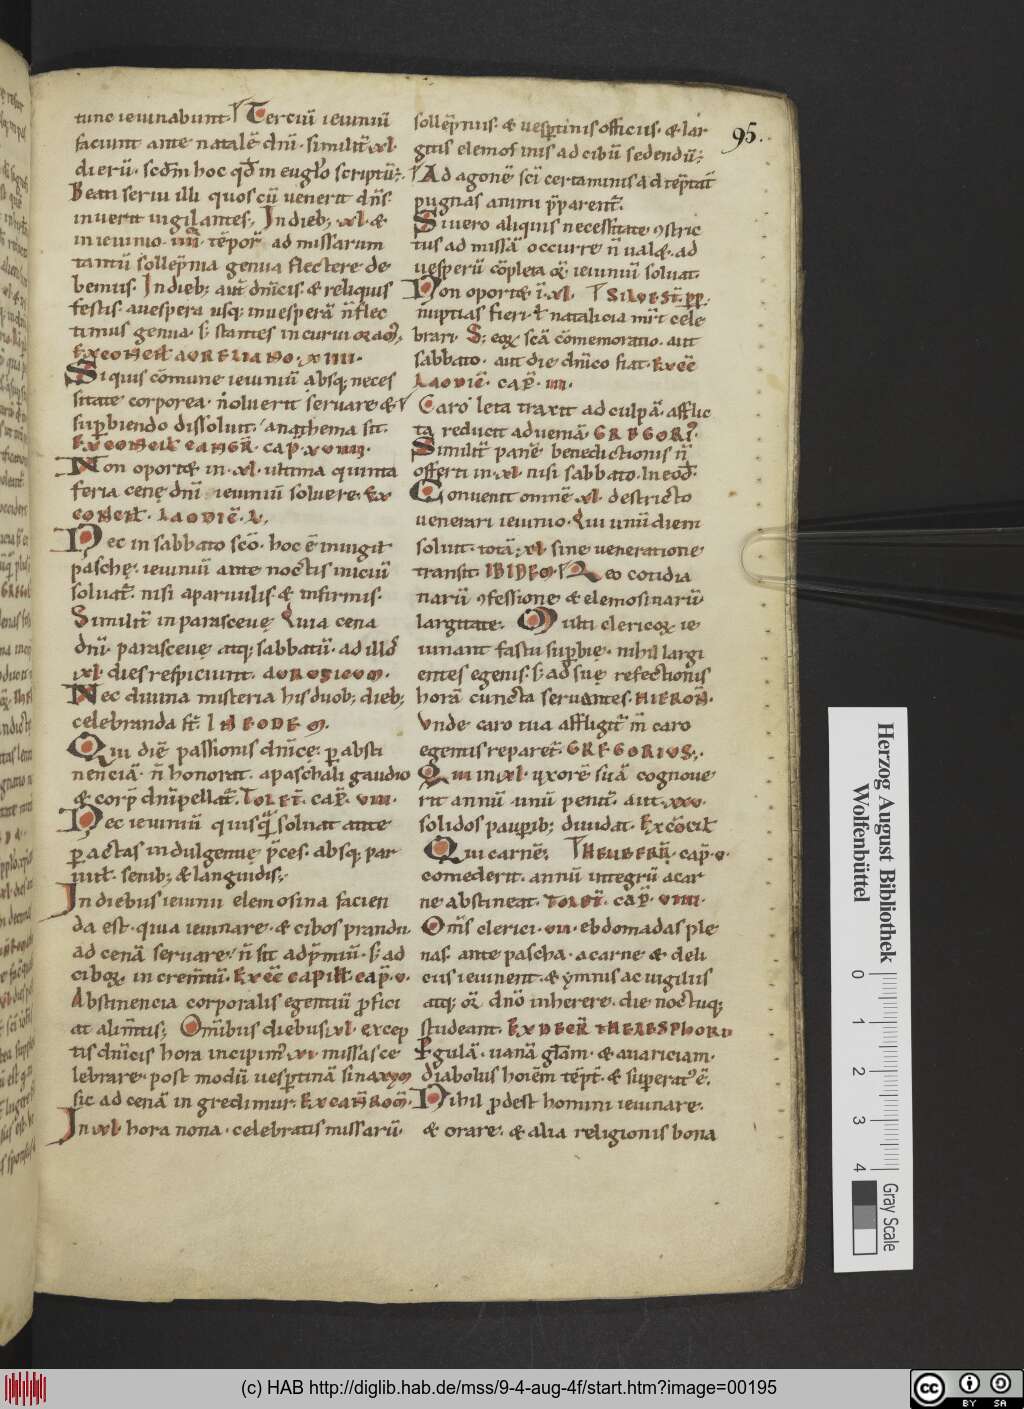 tunc ieiunabunt. Terciū ieiuniū
faciunt ante natalē dn̄i. similit̄ .xl.
dierū. scdm̄ hoc qd̄ in euglo scriptū;.
Beati serui illi quos cū uenerit dn̄s.
inuerit uigilantes;. Indieb; .xl. &
in ieiunio .iiii. tēpor̄ ad missarum
tantū sollēpnia genua flectere de
bemus. Indieb; aut̄ dn̄icis. & reliquis
festis. auespera usq; inuesperā n̄ flec
timus genua. s; stantes incurui oram̄;,
Ex concil̄ AURELIANO. XIIII.
Si quis cōmune ieiuniū absq; neces
sitate corporea. n̄oluerit seruare &
sup̄biendo dissoluit. anathema sit.
Ex concil̄ cangr̄. cap̄. xviiii.
Non oport& in .xl. ultima quinta
feria cenę dn̄i ieiuniū soluere. Ex
concil̄. LAODIĒ. L.
Nec in sabbato scō. hoc ē inuigit
paschę. ieiuniū ante noctis iniciū
soluat̄. nisi aparuulis. & infirmis.
Similit̄ in parasceuę. Quia cena
dn̄i. parasceuę atq; sabbatū. ad illos̄
.xl. dies respiciunt. AURUSICUM.
Nec diuina misteria his duob; dieb;
celebranda st̄. INEODEM.
Qui diē passionis dn̄icę. p̄ absti
nenciā. n̄ honorat. apaschali gaudio
& corp̄ dn̄i pellat̄. TOLET̄. cap̄. viii.
Nec ieiuniū quisquā soluat ante
p̄actas indulgentię p̄ces. absq; par
uul̄. senib; & languidis;.
In diebus ieiunii elemosina facien
da est. quia ieiunare. & cibos prandii.
ad cenā seruare. n̄ sit adp̄miū. s; ad
ciboꝝ in crem̄tū. Ex eē capitl̄ cap̄. v.
Abstinencia corporalis egentiū p̄fici
at alim̄tis;. Om̄ibus diebus .xl. excep
tis dn̄icis hora incipim̄ .xi. missas ce
lebrare. post modū uesp̄tinā sinaxym
sic ad cenā in gredimur. Ex CAM̄ROM̄.
In .xl. hora nona. celebratis missarū.
sollēpnius. & uesp̄tinis officiis. & lar
gitis elemosinis ad cibū sedendū;.
Ad agonē sci certaminis ad tēptat̄
pugnas animi p̄parent̄.
Si uero aliquis necessitate ꝯstric
tus ad missā occurre n̄ ual&. ad
uesperū cōpleta or̄. ieiuniū soluat.
Non oport& ī .xl. SILUEST̄. PP.
nuptias fieri. ł natalicia mr̄t cele
brari. S; eoꝝ scā cōmemoratio. aut
sabbato. aut die dn̄ico fiat. Ex eē
LAODIĒ. CAP̄. III.
Caro leta traxit ad culpā. afflic
ta reducit adueniā. GREGOR̄.
Similit̄ panē benedictionis n̄
offerri in .xl. nisi sabbato. In eod̄.
Conuenit omnē .xl. destricto
uenerari ieiunio. Qui unū diem
soluit. totā .xl. sine ueneratione
transit. IBIDEM. Reo cotidia
narū ꝯfessione & elemosinarū
largitate. Multi clericoꝝ ie
iunant fastu sup̄bię. nihil largi
entes egenis. s; ad suę refectionis
horā cuncta seruantes. HIERON̄.
Unde caro tua affligit̄ in̄ caro
egentis reparet̄. GREGORIUS;.
Qui in .xl. uxorē suā cognoue
rit annū unū penit̄. aut .xxv.
solidos paup̄ib; diuidat. Ex cōcil̄
Qui carnē. THEUBERII. cap̄. v.
comederit. annū integrū acar
ne abstineat. TOLET̄. CAP̄. VIIII.
Om̄s clerici .vii. ebdomadas ple
nas. ante pascha. acarne & deli
ciis ieiunent. & ymnis ac uigiliis
atq; or̄. dn̄o inherere. die noctuq;
studeant. Ex DECR̄ THELESPHORI
p̄ gulā. uanā glam̄. & auariciam.
diabolus hoiēm tēpt̄. & superat; ē.
Nihil p̄dest homini ieiunare.
& orare. & alia religionis bona
95.
Herzog August Bibliothek
Wolfenbüttel
0 1 2 3 4
Gray Scale
(c) HAB http://diglib.hab.de/mss/9-4-aug-4f/start.htm?image=00195
cc BY SA